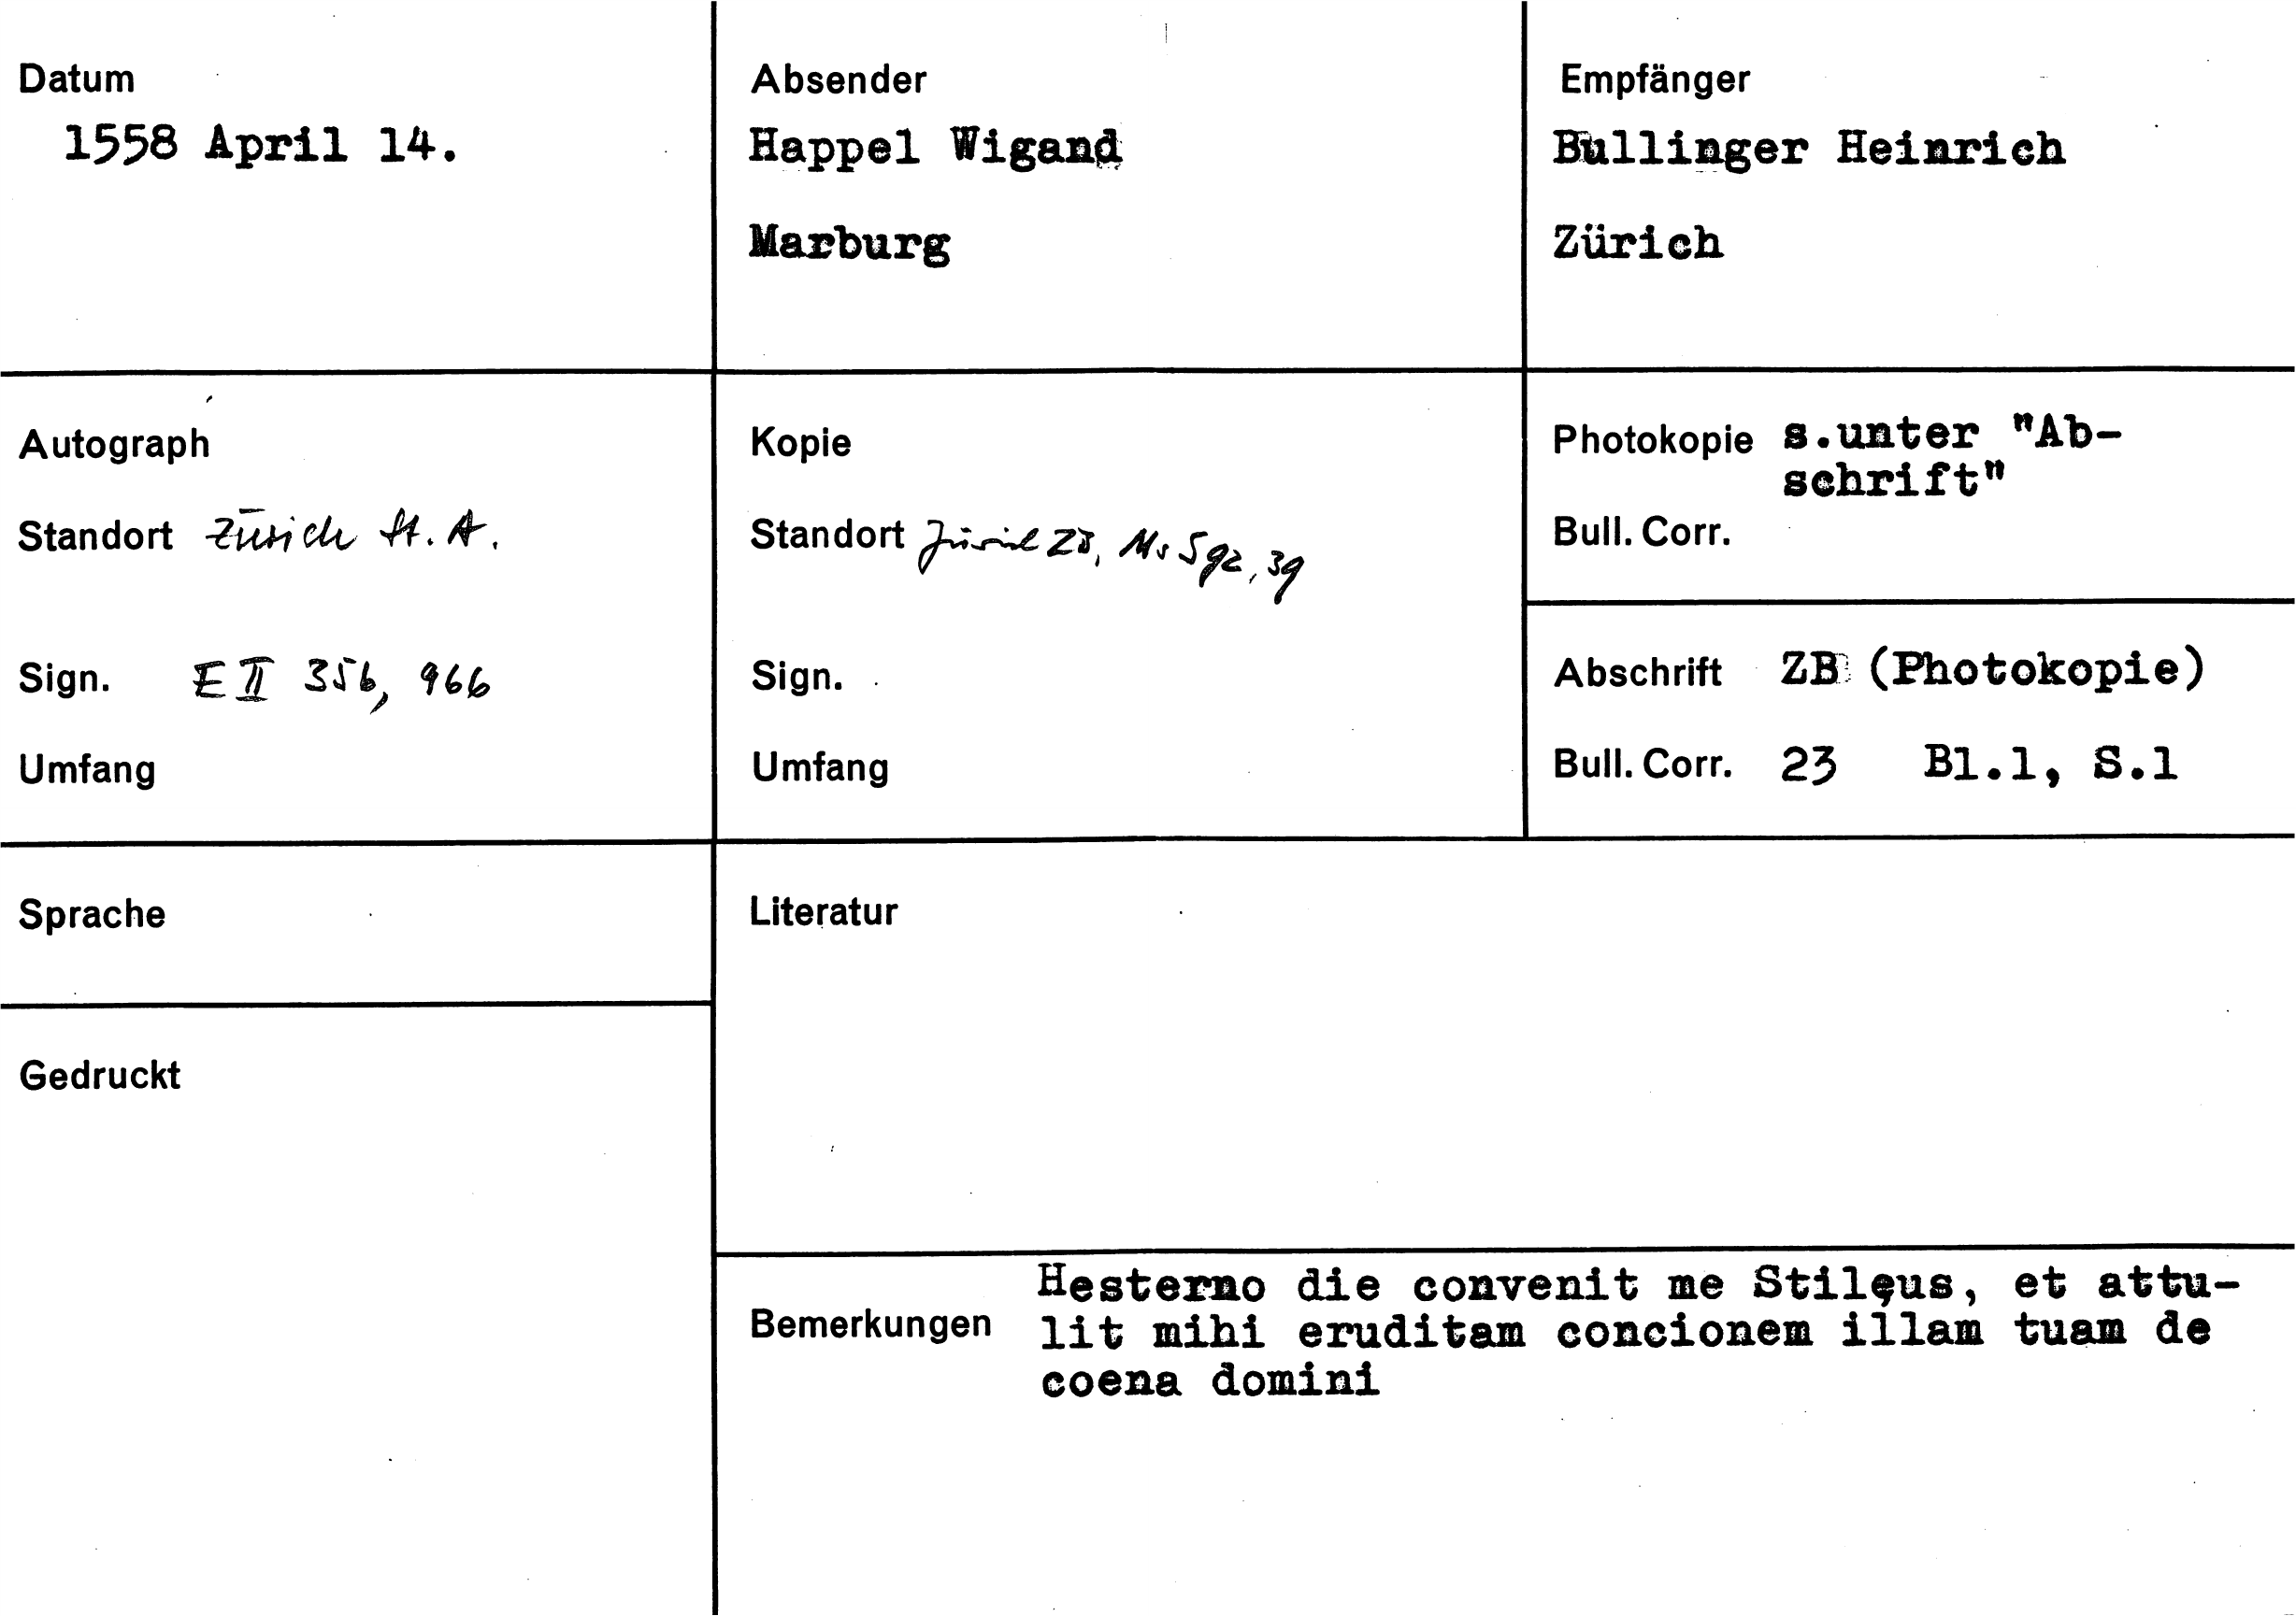 Datum
1558 April 14.
Absender
Happel Wigand
Marburg
Empfänger
Bullinger Heinrich
Zürich
Autograph
Standort Zürich St. A.
Sign. E II 356, 966
Umfang
Kopie
Standort Zürich ZB, Ms S 92, 39
Sign.
Umfang
Photokopie s.unter "Ab-
schrift"
Bull. Corr.
Abschrift ZB (Photokopie)
Bull. Corr. 23 Bl.1, S.1
Sprache
Gedruckt
Literatur
Bemerkungen
Hesterno die convenit me Stilęus, et attu-
lit mihi eruditam concionem illam tuam de
coena domini